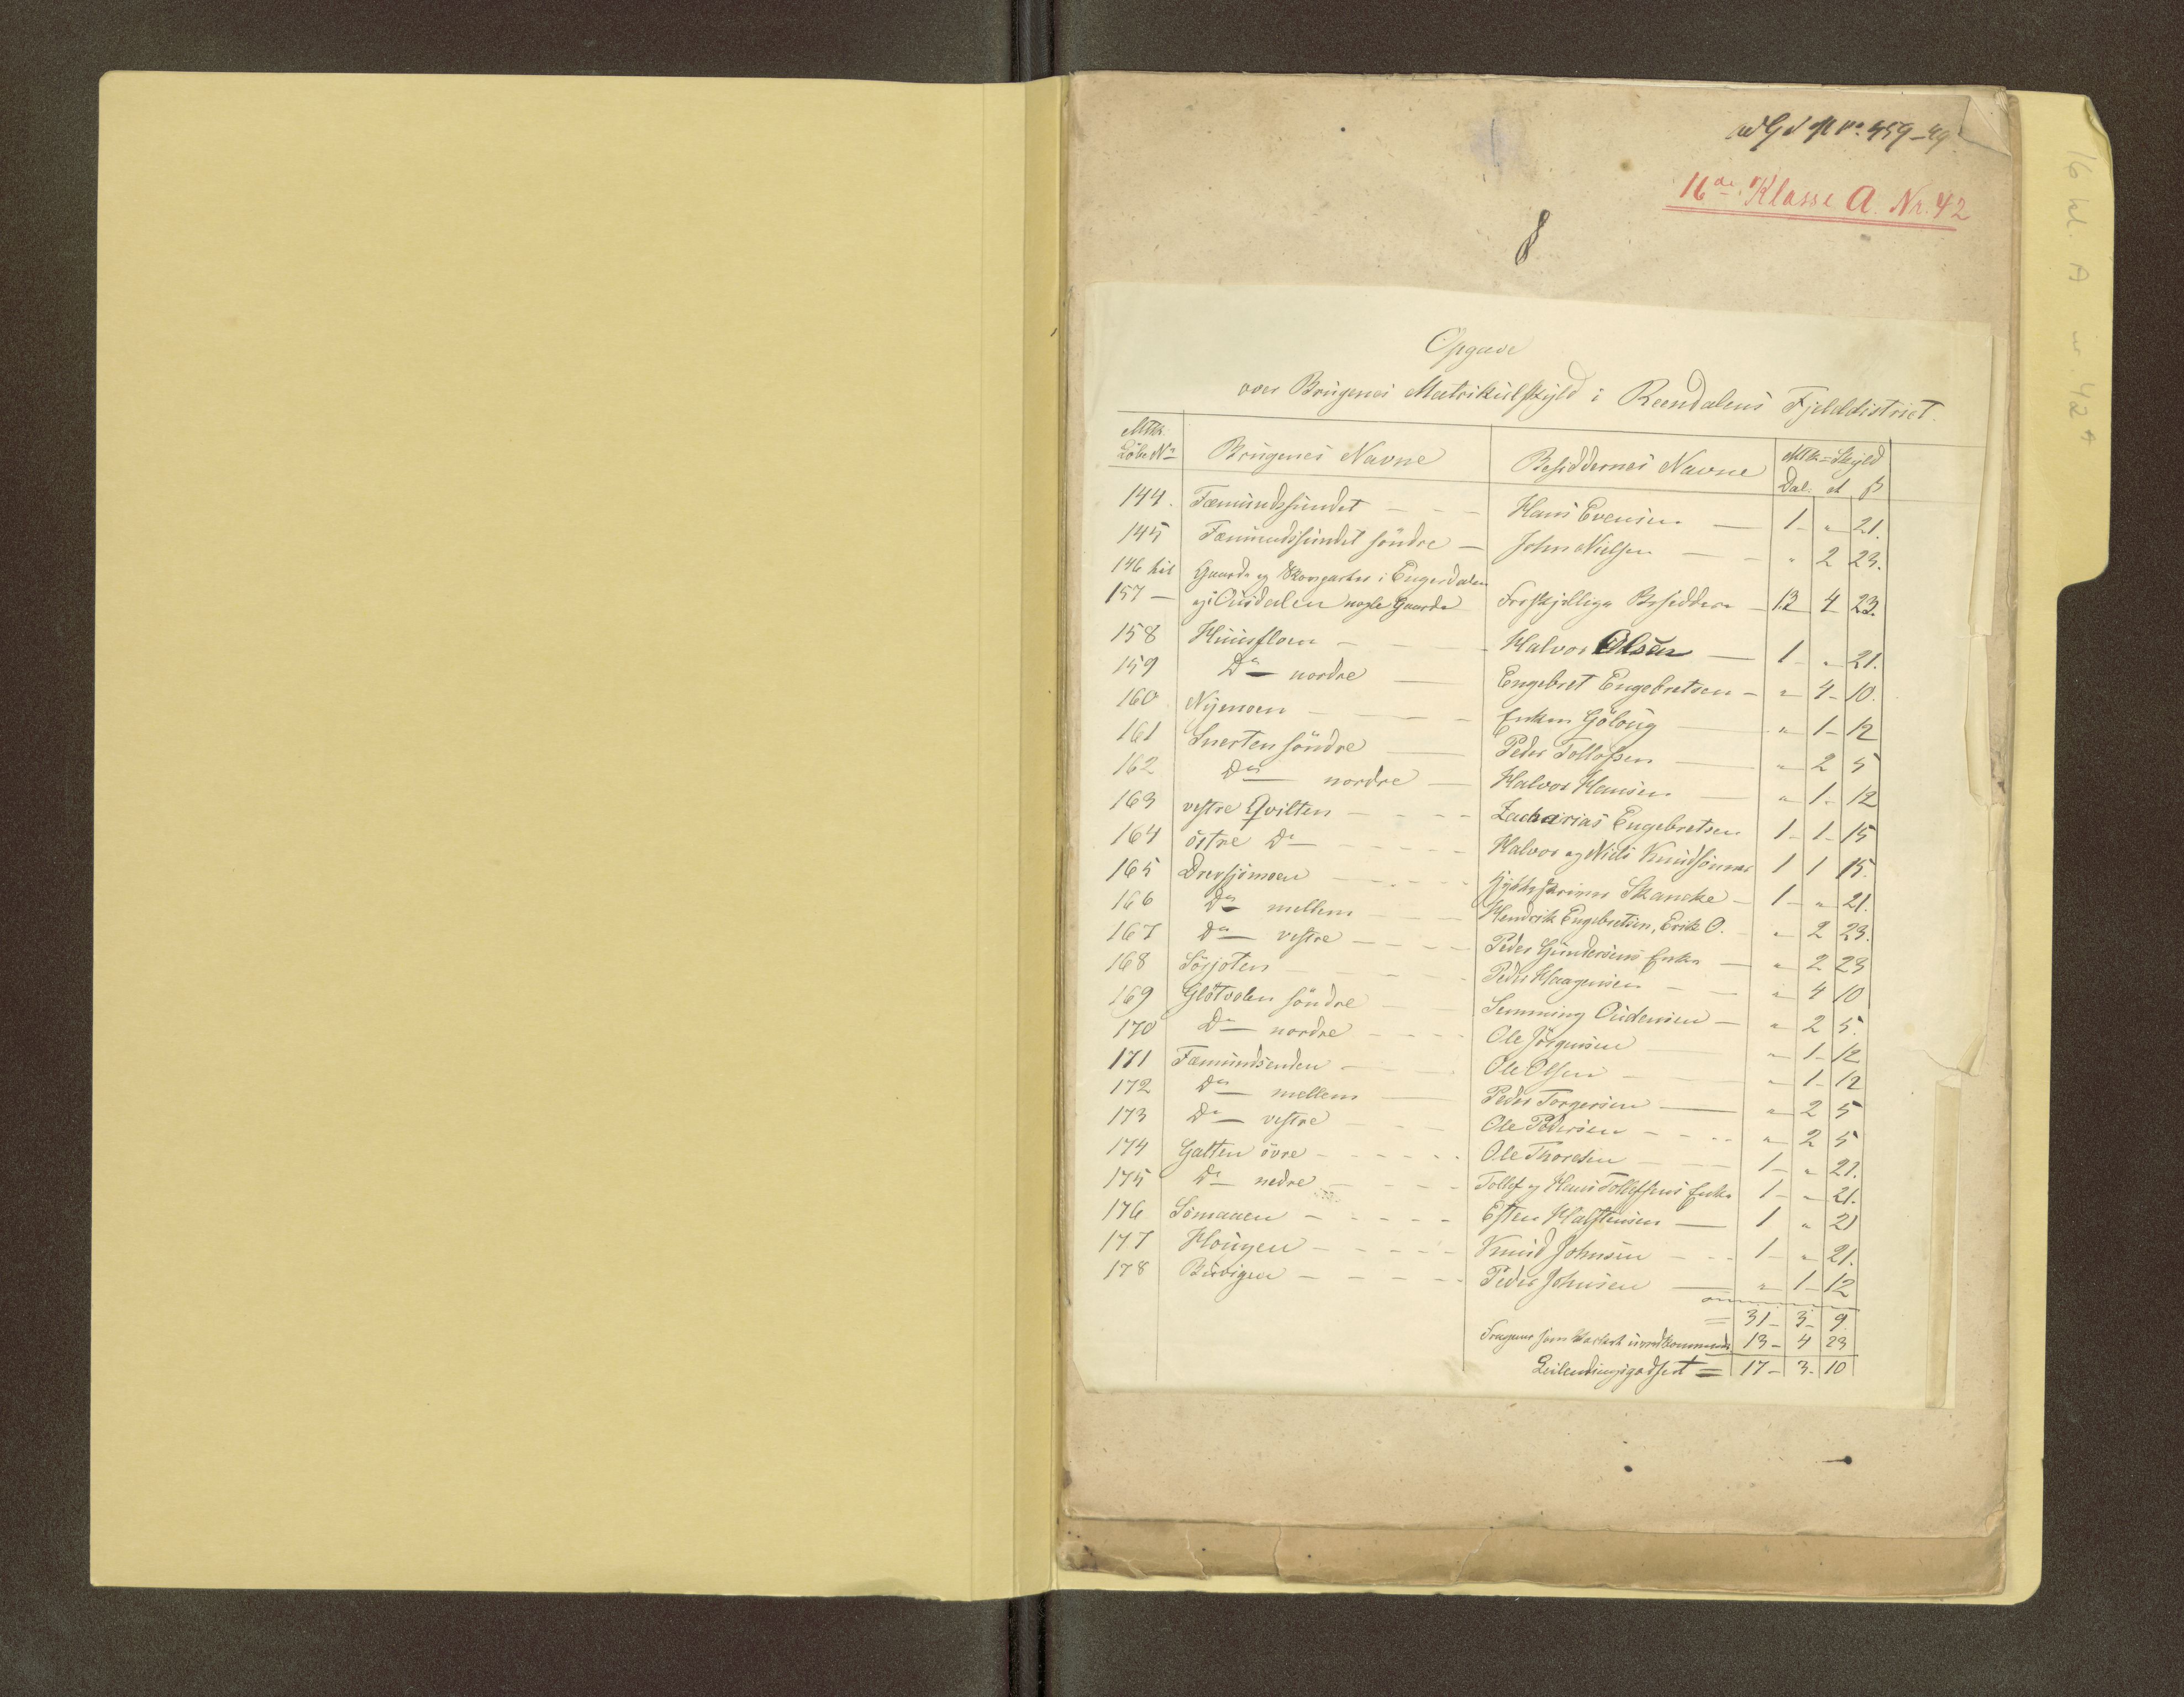 16de Klasse A. Nr. 42
8
16 kl. A nr. 42
Opgave
over Brugenes Matrikulskyld i Rendalens Fjelddistrict.
Mtk. Löbe No Brugenes Navne Besiddernes Navne Mtk=Skyld
Dal. ort ß
144. Fæmundssundet - - - Hans Evensen — 1 - " - 21.
145 Fæmundssundet söndre — John Nielsen — " 2 23.
146 til Gaarde og Skovparter i Engerdalen
157 — og i Oûsdalen nogle Gaarde Forskjellige Besiddere - 13 4 23.
158 Huusfloen - - - Halvor Olsen — 1 - " - 21.
159 Do nordre — Engebret Engebretsen - " - 4 - 10.
160 Nymoen - - - Enken Gölöug — " - 1 - 12
161 Snerten söndre — Peder Tollofsen — " 2 5
162 Do nordre — Halvor Hansen — " 1 - 12
163 vestre Qvilten - - - - Zacharias Engebretsen 1 - 1 - 15
164 östre Do - - - - Halvor og Niels Knudsönner 1 1 15.
165 Drevsjömoen - - - - Skancke - 1 - " - 21.
166 Do mellem - - - Hendrik Engebretsen, Erik O. - " - 2 23.
167 Do vestre - - - - Peder Gundersens Enke — " - 2 23
168 Sörjoten - - - - Peder Haagensen - - " 4 10
169 Glötvolen söndre — Semming Oudensen — " 2 5.
170 Do nordre - - - - Ole Jörgensen — " 1 - 12
171 Fæmundsenden - - - Ole Olsen - - - " 1 - 12
172 Do mellem — Peder Torgersen — " 2 5
173 Do vestre - - - Ole Pedersen - - - - " 2 5
174 Galten övre - - - - - - Ole Thoresen - - - 1 - " - 21.
175 Do nedre - - - - Tollef og Hans Tollefsens Enke 1 - " - 21.
176 Sömaaen - - - - - Esten Halstensen — 1 " 21
177 Hougen - - - - - Knud Johnsen - - - 1 - " - 21.
178 Burigen - - - - - Peder Johnsen — " - 1 - 12
= 31 - 3 - 9.
Fragaaer som 13 - 4 23
Leilendingsgodset = 17 - 3 - 10